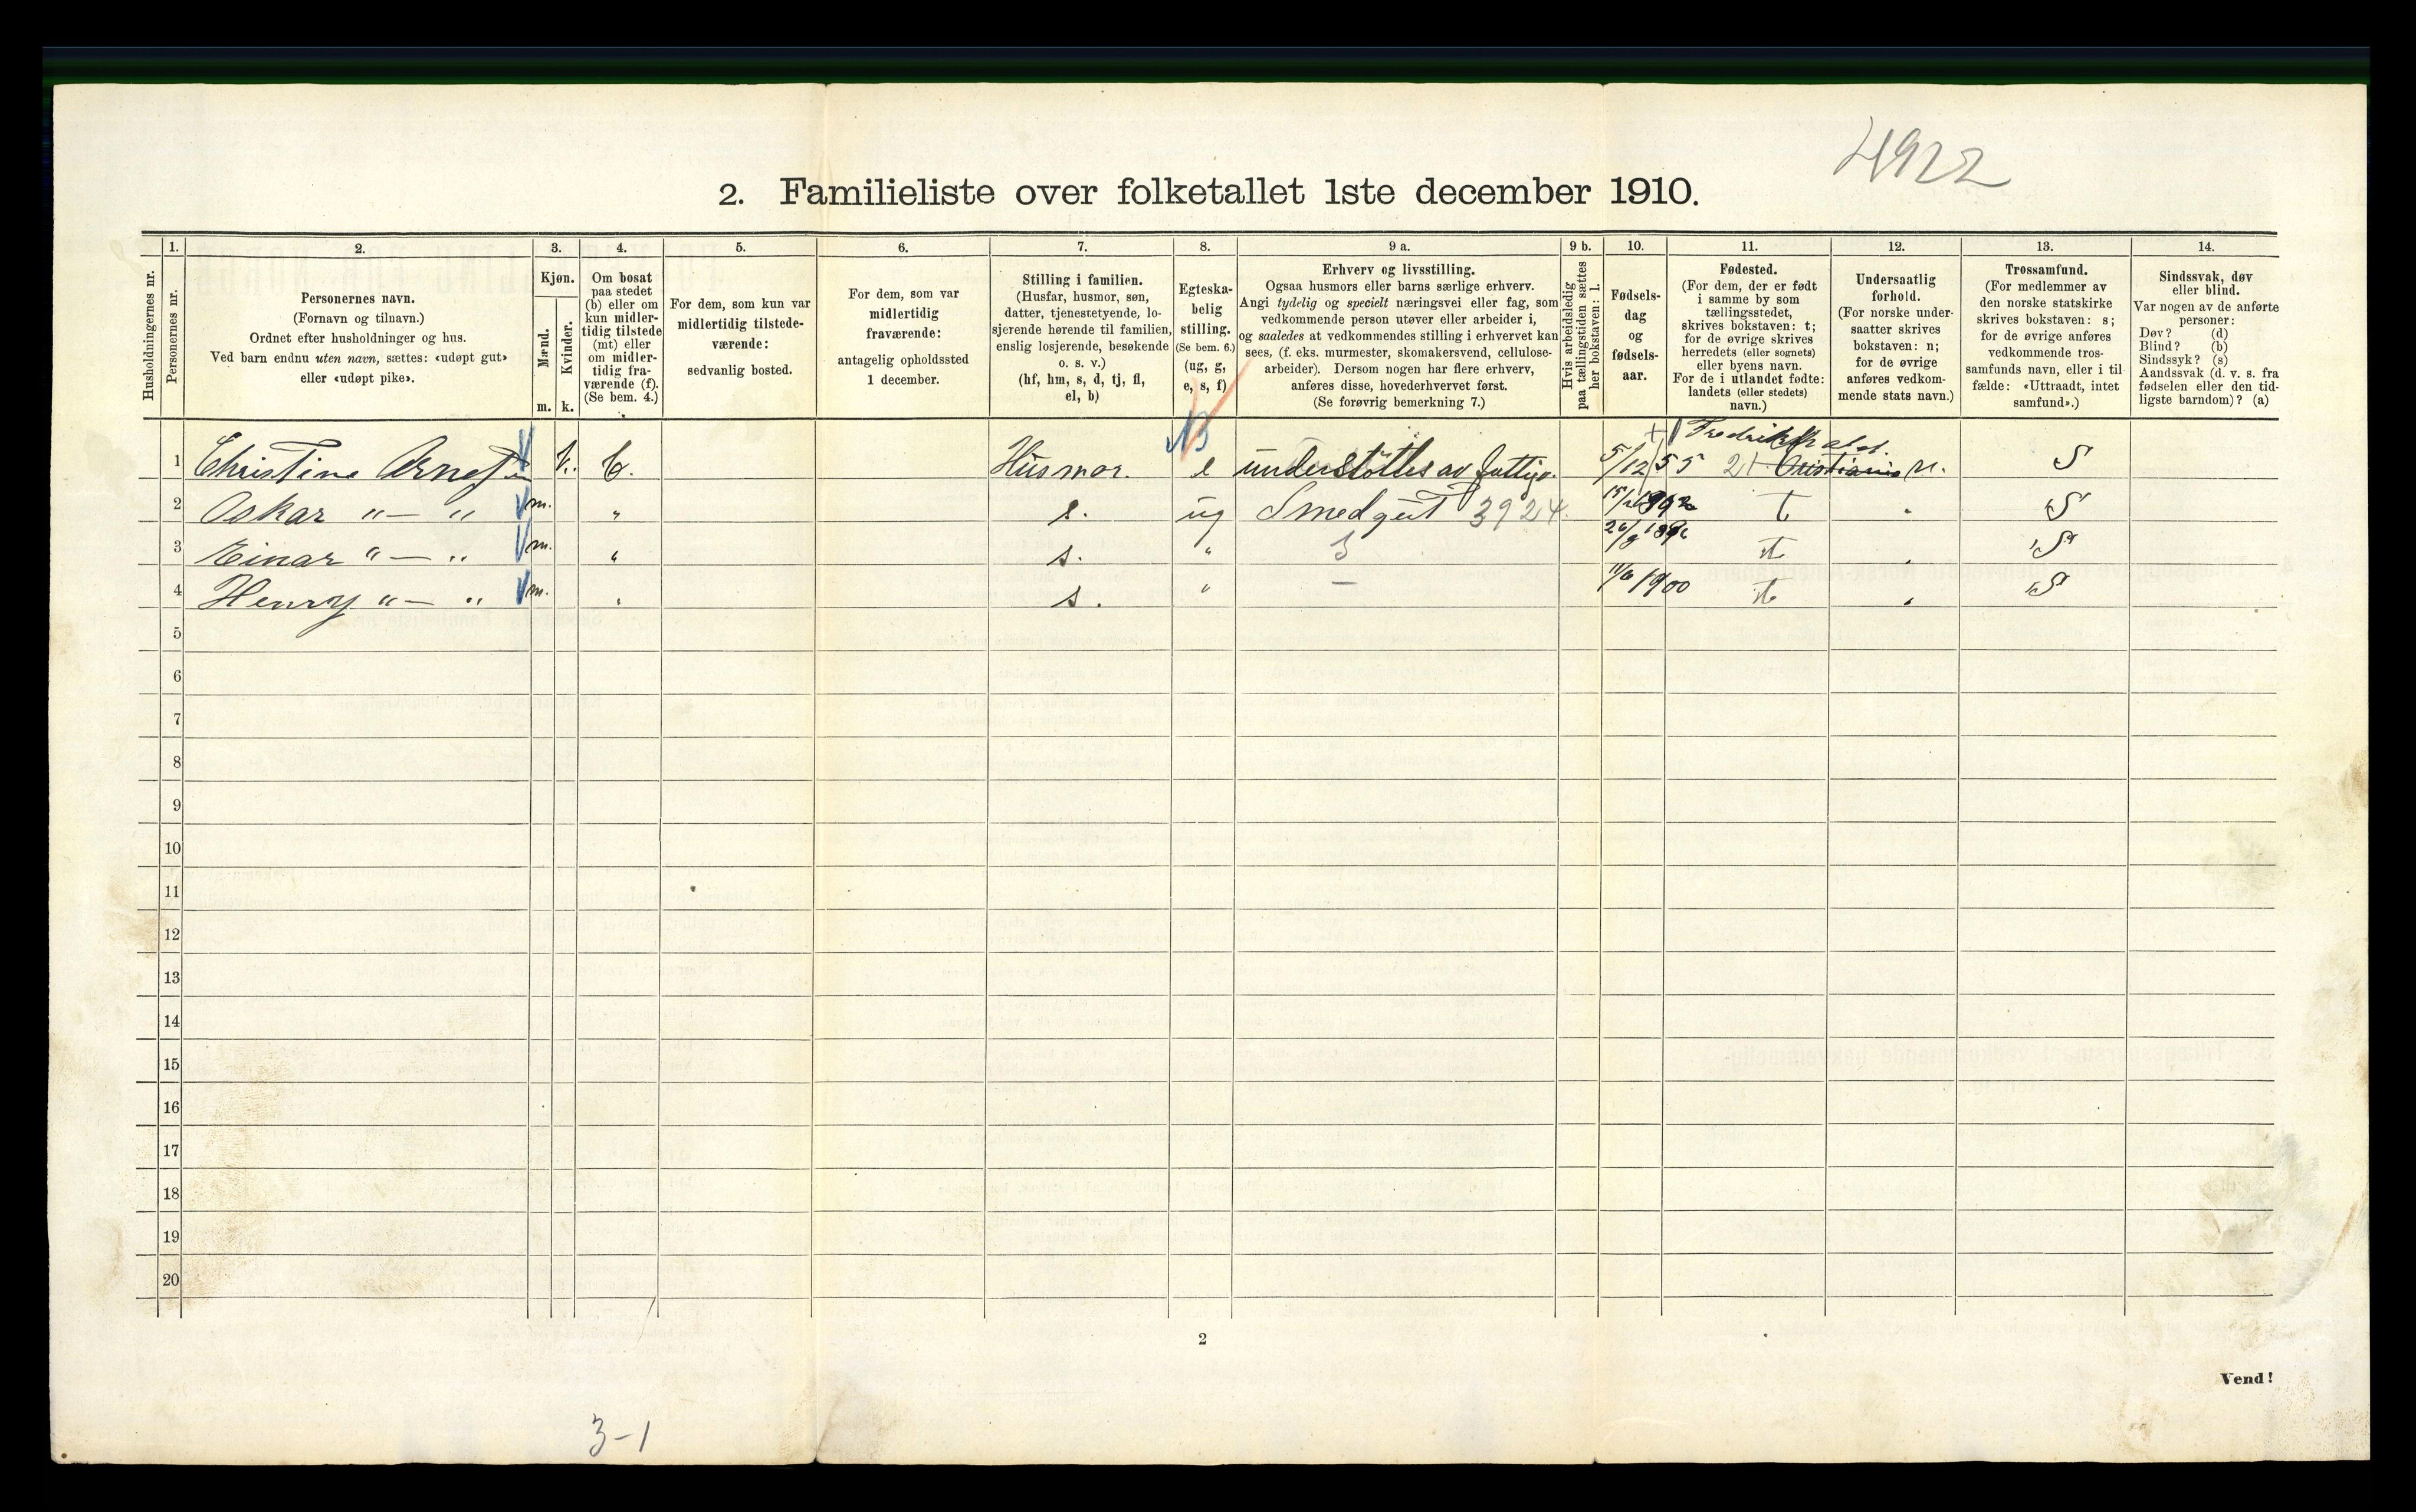 4922
2. Familieliste over folketallet 1ste december 1910.
Husholdningernes nr.
1.
Personernes nr.
2.
Personernes navn.
(Fornavn og tilnavn.)
Ordnet efter husholdninger og hus.
Ved barn endnu uten navn, sættes: «udøpt gut»
eller «udøpt pike».
3.
Kjøn.
Mænd.
Kvinder.
m. k.
4.
Om bosat
paa stedet
(b) eller om
kun midler-
tidig tilstede
(mt) eller
om midler-
tidig fra-
værende (f).
(Se bem. 4.)
5.
For dem, som kun var
midlertidig tilstede-
værende:
sedvanlig bosted.
6.
For dem, som var
midlertidig
fraværende:
antagelig opholdssted
1 december.
7.
Stilling i familien.
(Husfar, husmor, søn,
datter, tjenestetyende, lo-
sjerende hørende til familien,
enslig losjerende, besøkende
o. s. v.)
(hf, hm, s, d, tj, fl,
el, b)
8.
Egteska-
belig
stilling.
(Se bem. 6.)
(ug, g,
e, s, f)
9 a.
Erhverv og livsstilling.
Ogsaa husmors eller barns særlige erhverv.
Angi tydelig og specielt næringsvei eller fag, som
vedkommende person utøver eller arbeider i,
og saaledes at vedkommendes stilling i erhvervet kan
sees, (f. eks. murmester, skomakersvend, cellulose-
arbeider). Dersom nogen har flere erhverv,
anføres disse, hovederhvervet først.
(Se forøvrig bemerkning 7.)
9 b.
Hvis arbeidsledig
paa tællingstiden sættes
her bokstaven: l.
10.
Fødsels-
dag
og
fødsels-
aar.
11.
Fødested.
(For dem, der er født
i samme by som
tællingsstedet,
skrives bokstaven: t;
for de øvrige skrives
herredets (eller sognets)
eller byens navn.
For de i utlandet fødte:
landets (eller stedets)
navn.)
12.
Undersaatlig
forhold.
(For norske under-
saatter skrives
bokstaven: n;
for de øvrige
anføres vedkom-
mende stats navn.)
13.
Trossamfund.
(For medlemmer av
den norske statskirke
skrives bokstaven: s;
for de øvrige anføres
vedkommende tros-
samfunds navn, eller i til-
fælde: «Uttraadt, intet
samfund».)
14.
Sindssvak, døv
eller blind.
Var nogen av de anførte
personer:
Døv? (d)
Blind? (b)
Sindssyk? (s)
Aandssvak (d. v. s. fra
fødselen eller den tid-
ligste barndom)? (a)
Fredrikshald.
1 Christine k. b. Husmor. e understöttes av fattigv. 5/12 55 21 Kristiania n. S
2 Oskar "—" m. " s. ug Smedgut 3924. t " S
3 Einar "—" m. " s. " t " S
4 Henry "—" m. " s. " — 1900 t " S
5
6
7
8
9
10
11
12
13
14
15
16
17
18
19
20
2
Vend!
3-1